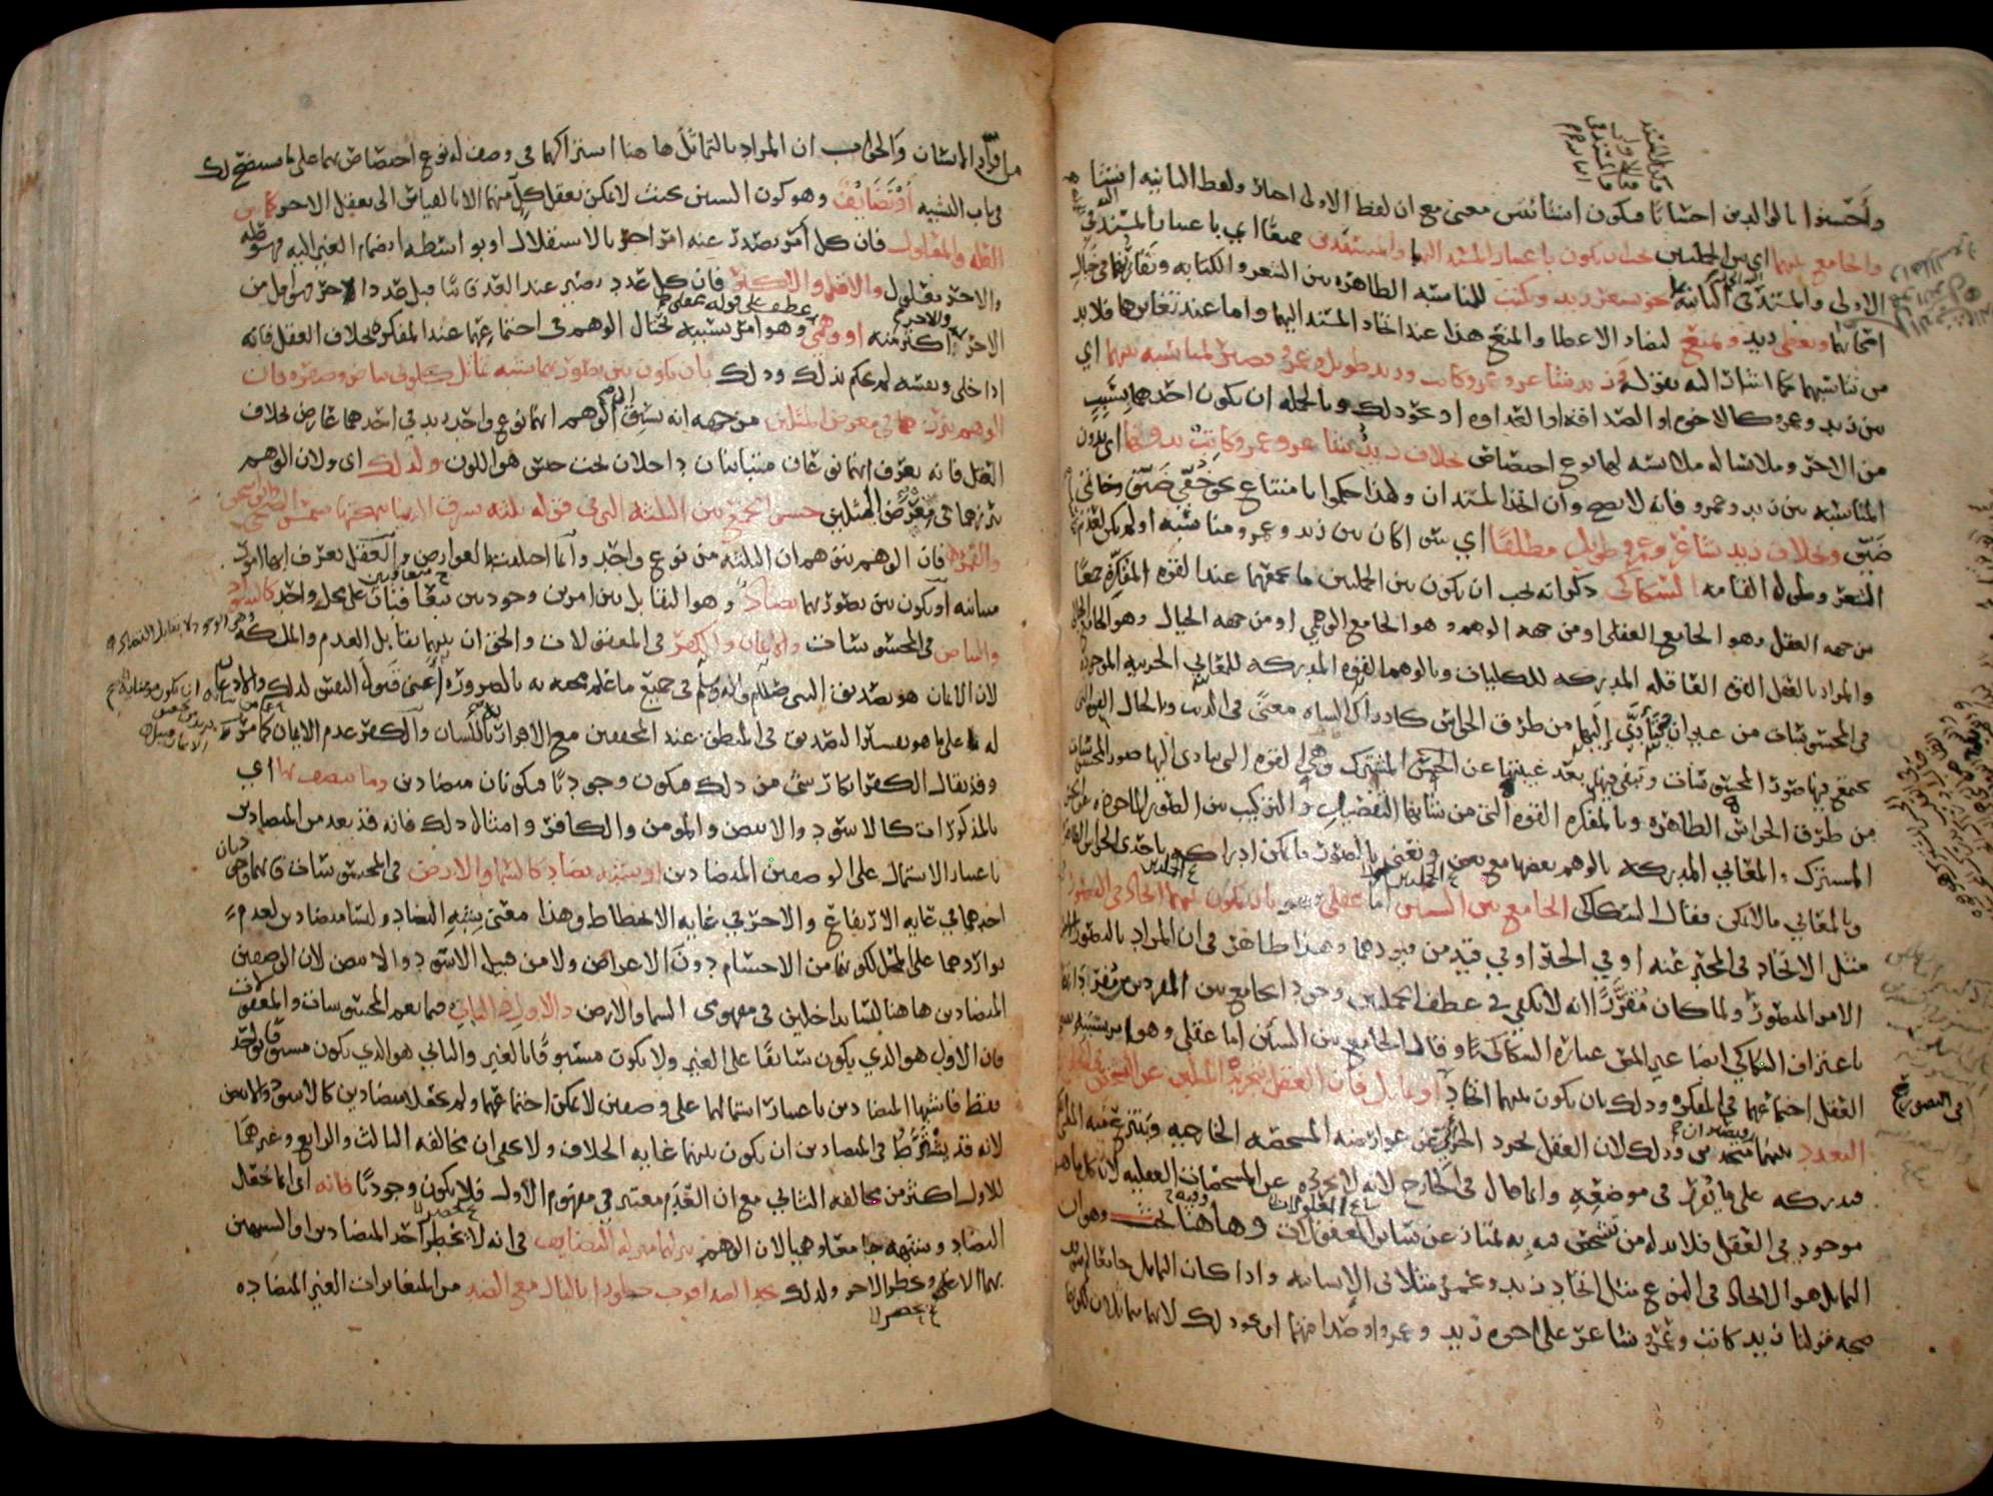 وأحسنوا بالوالدين احسانا فيكون انشائيتين معنى مع ان لفظ الاولى اخبار ولفظ الثانية انشا
والجامع بينهما اي بين الجملتين يجب ان يكون باعتبار المسند اليهما والمسندين جميعا اي باعتبار المسند اليه في
الاولى والمسند اليه في الثانية نحو يشعر زيد ويكتب للمناسبة الظاهرة بين الشعر والكتابة وتقارنهما في خيال
اصحابهما ويعطي زيد ويمنع لتضاد الاعطا والمنع هذا عند اتحاد المسند اليهما واما عند تغايرهما فلا بد
من تناسبهما كما اشار اليه بقوله وزيد شاعر وعمرو كاتب وزيد طويل وعمرو قصير لمناسبة بينهما اي
بين زيد وعمرو كالاخوة او الصداقة او العداوة او نحو ذلك وبالجملة ان يكون احدهما بسبب
من الاخر وملابسا له ملابسة لها نوع اختصاص بخلاف زيد شاعر وعمرو كاتب بدونها اي بدون
المناسبة بين زيد وعمرو فانه لا يصح وان اتحد المسندان ولهذا حكموا بامتناع نحو خفي ضيق وخاتمي
ضيق وبخلاف زيد شاعر وعمرو طويل مطلقا اي سواء كان بين زيد وعمرو مناسبة او لم يكن لعدم تناسب
الشعر وطول القامة السكاكي ذكر انه يجب ان يكون بين الجملتين ما يجمعهما عند القوة المفكرة جمعا
من جهة العقل وهو الجامع العقلي او من جهة الوهم وهو الجامع الوهمي او من جهة الخيال وهو الجامع الخيالي
والمراد بالعقل القوة العاقلة المدركة للكليات وبالوهم القوة المدركة للمعاني الجزئية الموجودة
في المحسوسات من غير ان تتأدى اليها من طرق الحواس كادراك الشاة معنى في الذئب وبالخيال القوة التي
تجتمع فيها صور المحسوسات وتبقى فيها بعد غيبتها عن الحس المشترك وهي القوة التي تتادى اليها صور المحسوسات
من طرق الحواس الظاهرة وبالمفكرة القوة التي من شانها التفصيل والتركيب بين الصور الماخوذة عن الحس
المشترك والمعاني المدركة بالوهم بعضها مع بعض ونعني بالصور ما يمكن ادراكه باحدى الحواس الظاهرة
وبالمعاني ما لا يمكن فقال السكاكي الجامع بين الشيئين اما عقلي وهو بان يكون بينهما اتحاد في التصور
مثل الاتحاد في المخبر عنه او في الخبر او في قيد من قيودهما وهذا ظاهر في ان المراد بالتصور
الامر المتصور ولما كان مقررا انه لا يكفي في عطف الجملتين وجود الجامع بين المفردين من مفرداتهما
باعتراف السكاكي ايضا غير المص عبارة السكاكي وقال الجامع بين الشيئين اما عقلي وهو امر بسببه يقتضي
العقل اجتماعهما في المفكرة وذلك بان يكون بينهما اتحاد او تماثل فان العقل بتجريده المثلين عن التشخص في الخارج
التعدد بينهما فيصيران متحدين وذلك لان العقل يجرد الجزئي عن عوارضه المشخصة الخارجية وينتزع منه المعنى الكلي
فيدركه على ما تقرر في موضعه وانما قال في الخارج لانه لا يجرده عن المشخصات العقلية لان كل ما هو
موجود في العقل فلا بد له من تشخص فيه به يمتاز عن سائر المعقولات وها هنا بحث وهو ان
التماثل هو الاتحاد في النوع مثل اتحاد زيد وعمرو مثلا في الانسانية واذا كان التماثل جامعا لم تتوقف
صحة قولنا زيد كاتب وعمرو شاعر على اخوة زيد وعمرو او صداقتهما او نحو ذلك لانهما متماثلان لكونهما
في التصور صح
من افراد الانسان والجواب ان المراد بالتماثل ها هنا اشتراكهما في وصف له نوع اختصاص بهما على ما سيتضح لك
في باب التشبيه او تضايف وهو كون الشيئين بحيث لا يمكن تعقل كل منهما الا بالقياس الى تعقل الاخر كما بين
العلة والمعلول فان كل امر يصدر عنه امر اخر بالاستقلال او بواسطة انضمام الغير اليه فهو علة
والاخر معلول والاقل والاكثر فان كل عدد يصير عند العد فانيا قبل عدد اخر فهو اقل من
الاخر والاخر اكثر منه او وهمي وهو امر بسببه يحتال الوهم في اجتماعهما عند المفكرة بخلاف العقل فانه
عطف على قوله عقلي
اذا خلى ونفسه لم يحكم بذلك وذلك بان يكون بين تصوريهما شبه تماثل كلوني بياض وصفرة فان
الوهم يبرزهما في معرض المثلين من جهة انه يسبق الى الوهم انهما نوع واحد زيد في احدهما عارض بخلاف
العقل فانه يعرف انهما نوعان متباينان داخلان تحت جنس هو اللون ولذلك اي ولان الوهم
يبرزهما في معرض المثلين حسن الجمع بين الثلثة التي في قوله ثلثة تشرق الدنيا ببهجتها شمس الضحى وابو اسحق
والقمر فان الوهم يتوهم ان الثلثة من نوع واحد وانما اختلفت بالعوارض والعقل يعرف انها امور
متباينة او يكون بين تصوريهما تضاد وهو التقابل بين امرين وجوديين يتعاقبان على محل واحد كالسواد
والبياض في المحسوسات والايمان والكفر في المعقولات والحق ان بينهما تقابل العدم والملكة
لان الايمان هو تصديق النبي صلى الله عليه واله وسلم في جميع ما علم مجيئه به بالضرورة اعني قبول النفس لذلك والاذعان
له على ما هو تفسير التصديق في المنطق عند المحققين مع الاقرار باللسان والكفر عدم الايمان عما من شانه
وقد يقال الكفر انكار شيء من ذلك فيكون وجوديا فيكونان متضادين وما يتصف بها اي
بالمذكورات كالاسود والابيض والمومن والكافر وامثال ذلك فانه قد يعد من المتضادين
باعتبار الاشتمال على الوصفين المتضادين او شبه تضاد كالسما والارض في المحسوسات فانهما وجوديان
احدهما في غاية الارتفاع والاخر في غاية الانحطاط وهذا معنى شبه التضاد وليسا متضادين لعدم
تواردهما على المحل لكونهما من الاجسام دون الاعراض ولا من قبيل الاسود والابيض لان الوصفين
المتضادين ها هنا ليسا بداخلين في مفهومي السما والارض والاول والثاني فيما يعم المحسوسات والمعقولات
فان الاول هو الذي يكون سابقا على الغير ولا يكون مسبوقا بالغير والثاني هو الذي يكون مسبوقا بواحد
فقط فاشبها المتضادين باعتبار اشتمالهما على وصفين لا يمكن اجتماعهما ولم يجعلا متضادين كالاسود والابيض
لانه قد يشترط في المتضادين ان يكون بينهما غاية الخلاف ولا يخفى ان مخالفة الثالث والرابع وغيرهما
للاول اكثر من مخالفة الثاني مع ان العدم معتبر في مفهوم الاول فلا يكون وجوديا فانه اي انما يجعل
التضاد وشبهه جامعا وهميا لان الوهم ينزلهما منزلة التضايف في انه لا يخطر احد المتضادين او الشبيهين
بهما الا ويخطر الاخر ولذلك تجد الضد اقرب خطورا بالبال مع الضد من المتغايرات الغير المتضادة